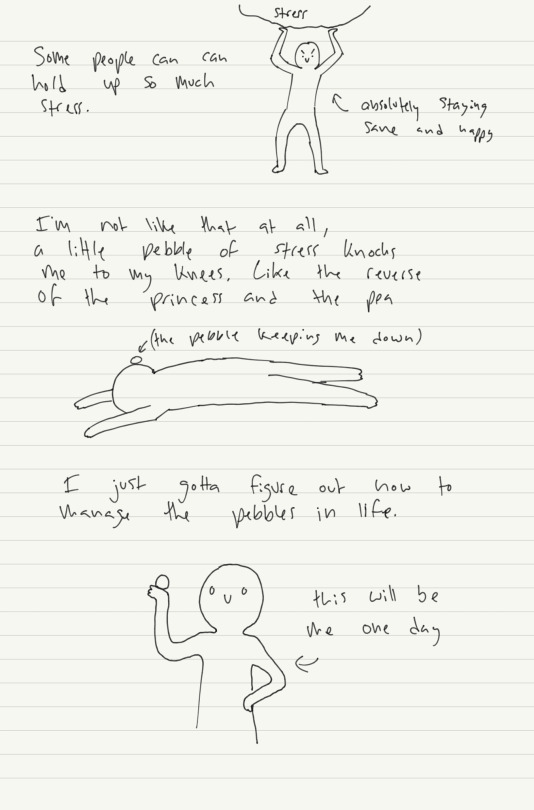 stress
Some people can can
hold up so much
stress.
absolutely staying
sane and happy
I'm not like that at all,
a little pebble of stress knocks
me to my knees. Like the reverse
of the princess and the pea
(the pebble keeping me down)
I just gotta figure out how to
manage the pebbles in life.
this will be
me one day